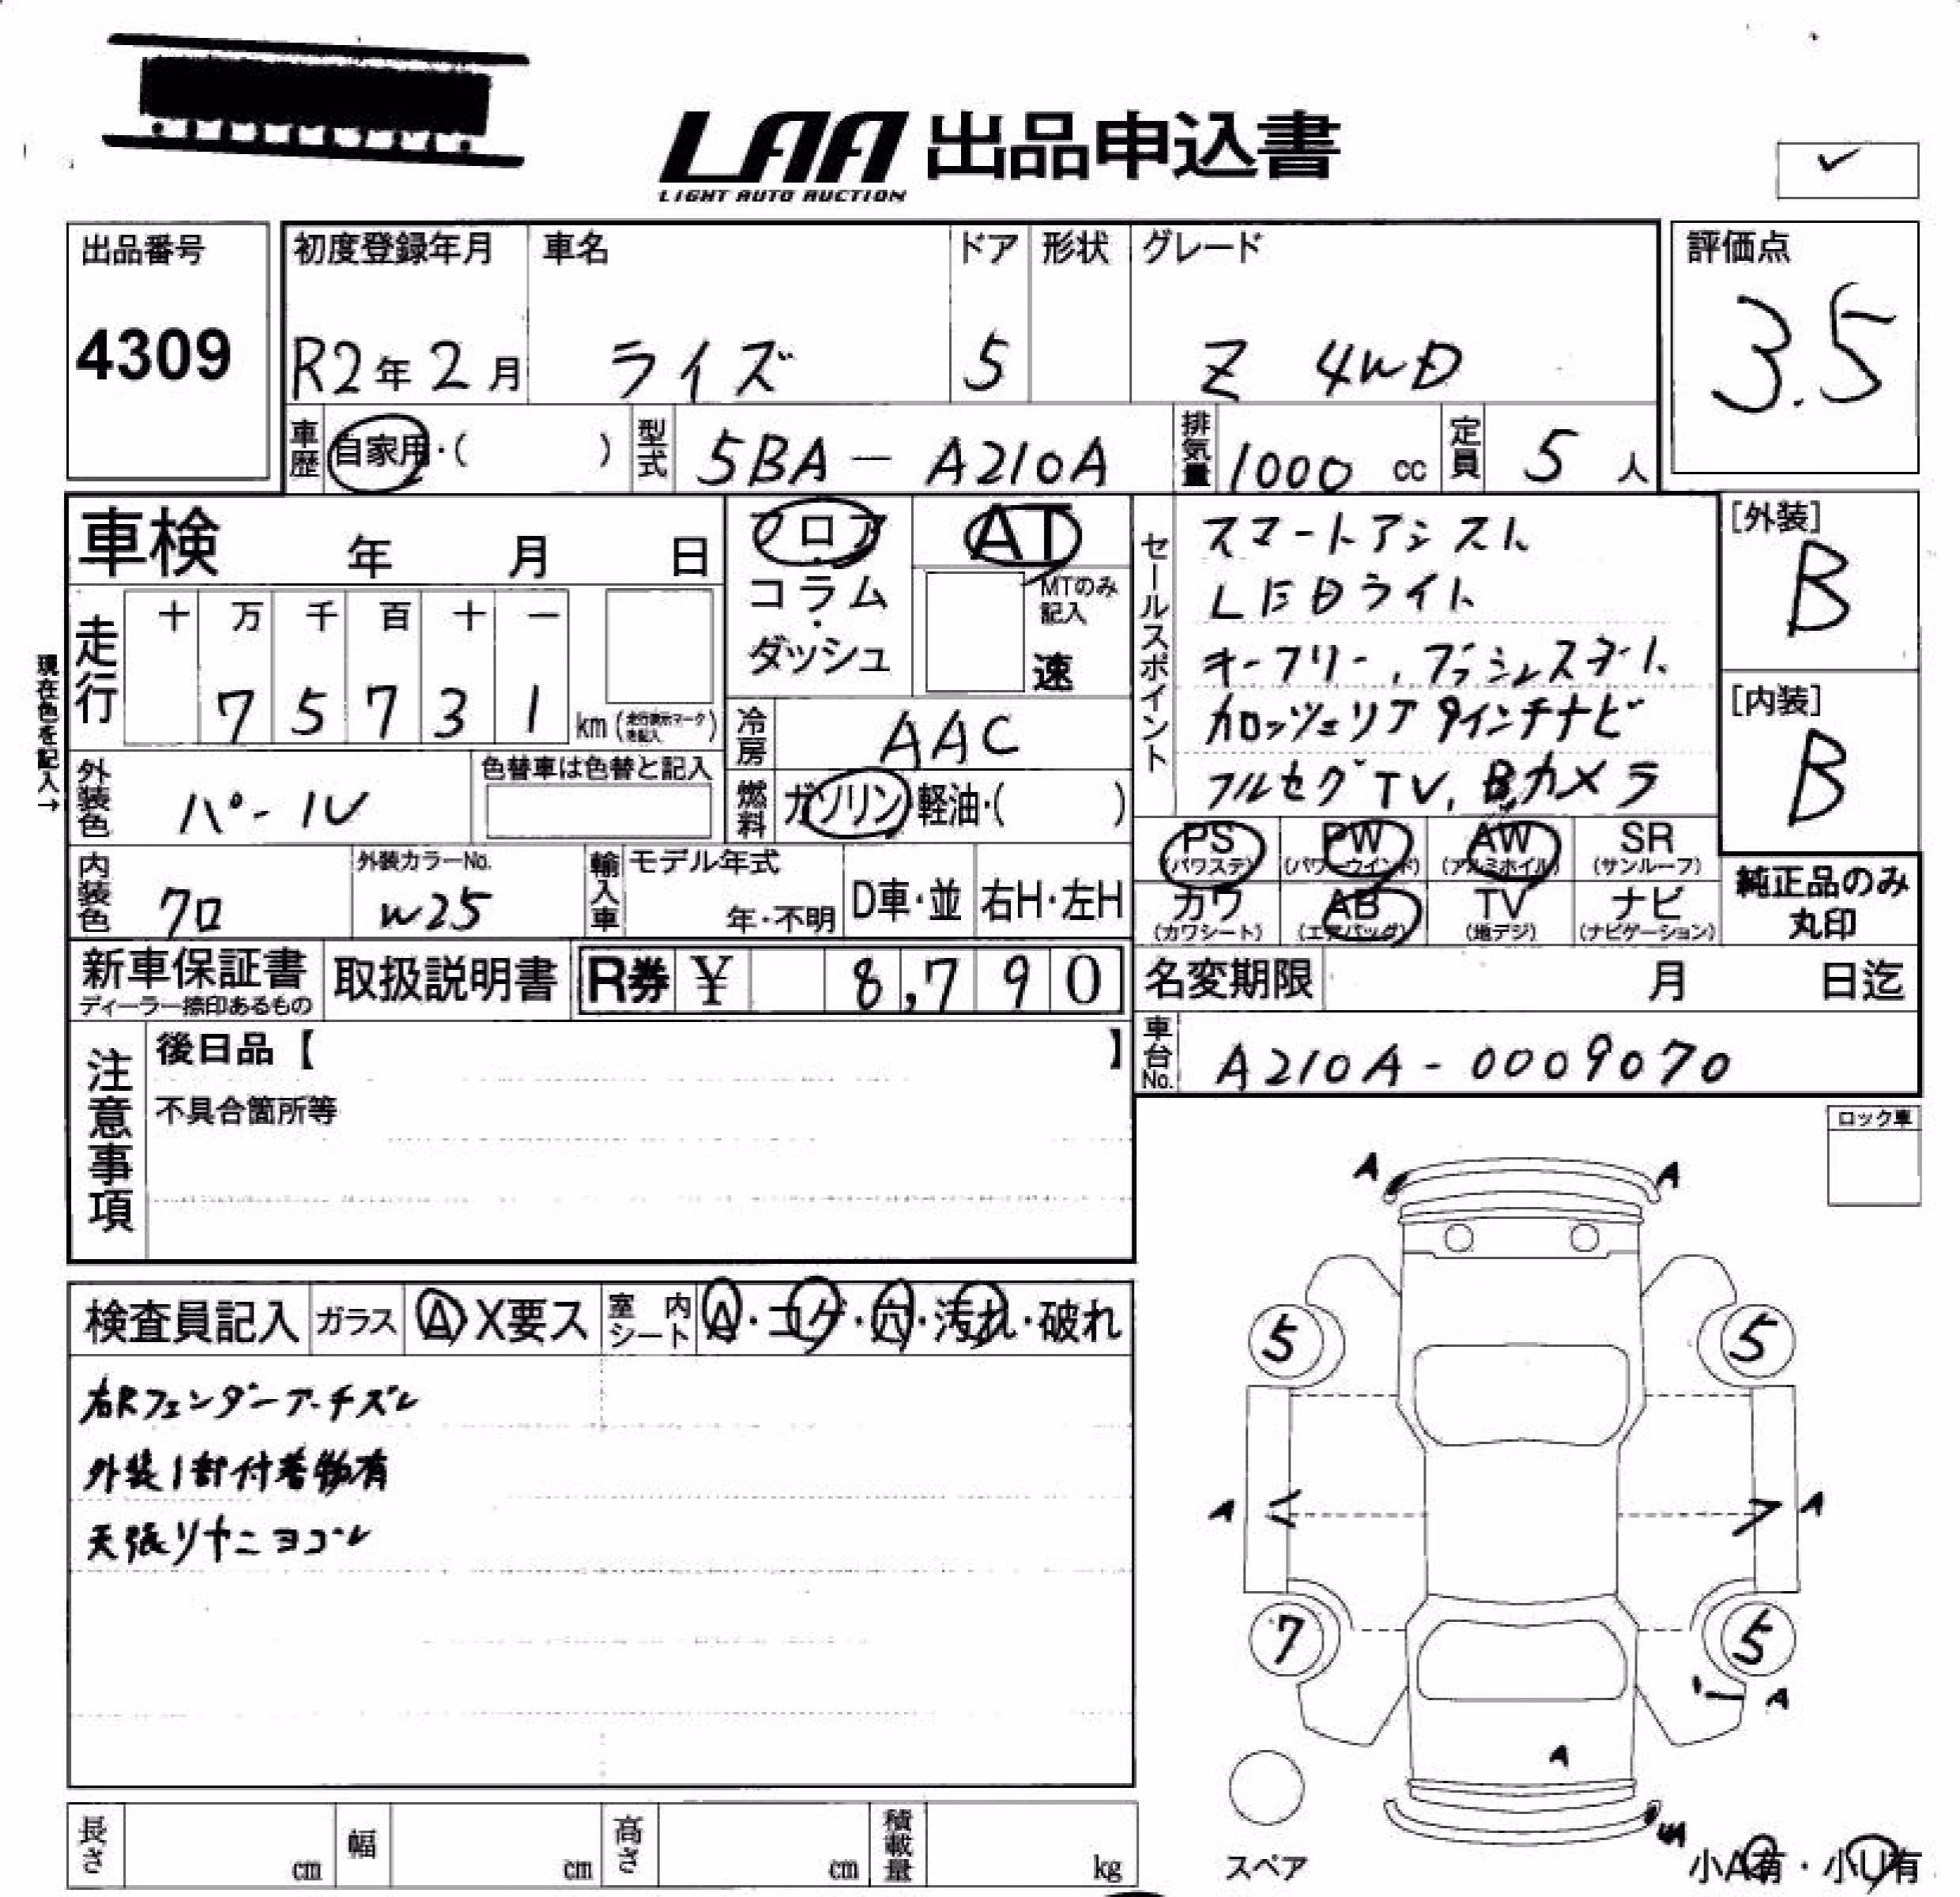 LAA 出品申込書
LIGHT AUTO AUCTION
✓
出品番号
4309
初度登録年月
R2年2月
車名
ライズ
ドア
5
形状
グレード
Z 4WD
評価点
3.5
車歴
自家用・( )
型式
5BA-A210A
排気量
1000 cc
定員
5 人
車検 年 月 日
フロア・コラム・ダッシュ
AT
MTのみ記入
速
セールスポイント
スマートアシスト
LEDライト
キーフリー,プッシュスタート
カロッツェリア 9インチナビ
フルセグTV, Bカメラ
[外装]
B
[内装]
B
現在色を記入→
走行
十 万 千 百 十 一
7 5 7 3 1
km (走行表示マークを記入)
冷房
AAC
燃料
ガソリン・軽油・( )
外装色
パール
色替車は色替と記入
PS (パワステ)
PW (パワーウインド)
AW (アルミホイル)
SR (サンルーフ)
カワ (カワシート)
AB (エアバッグ)
TV (地デジ)
ナビ (ナビゲーション)
純正品のみ丸印
内装色
クロ
外装カラーNo.
W25
輸入車
モデル年式
年・不明
D車・並
右H・左H
新車保証書
ディーラー捺印あるもの
取扱説明書
R券 ¥ 8,790
名変期限 月 日迄
車台No.
A210A-0009070
注意事項
後日品【 】
不具合箇所等
ロック車
検査員記入
ガラス
A X要ス
室内シート
A・コゲ・穴・汚れ・破れ
右Rフェンダーアーチズレ
外装1部付着物有
天張リヤニヨゴレ
A A
5 5
A A
7 5
A
A
スペア
小A有・小U有
長さ cm
幅 cm
高さ cm
積載量 kg